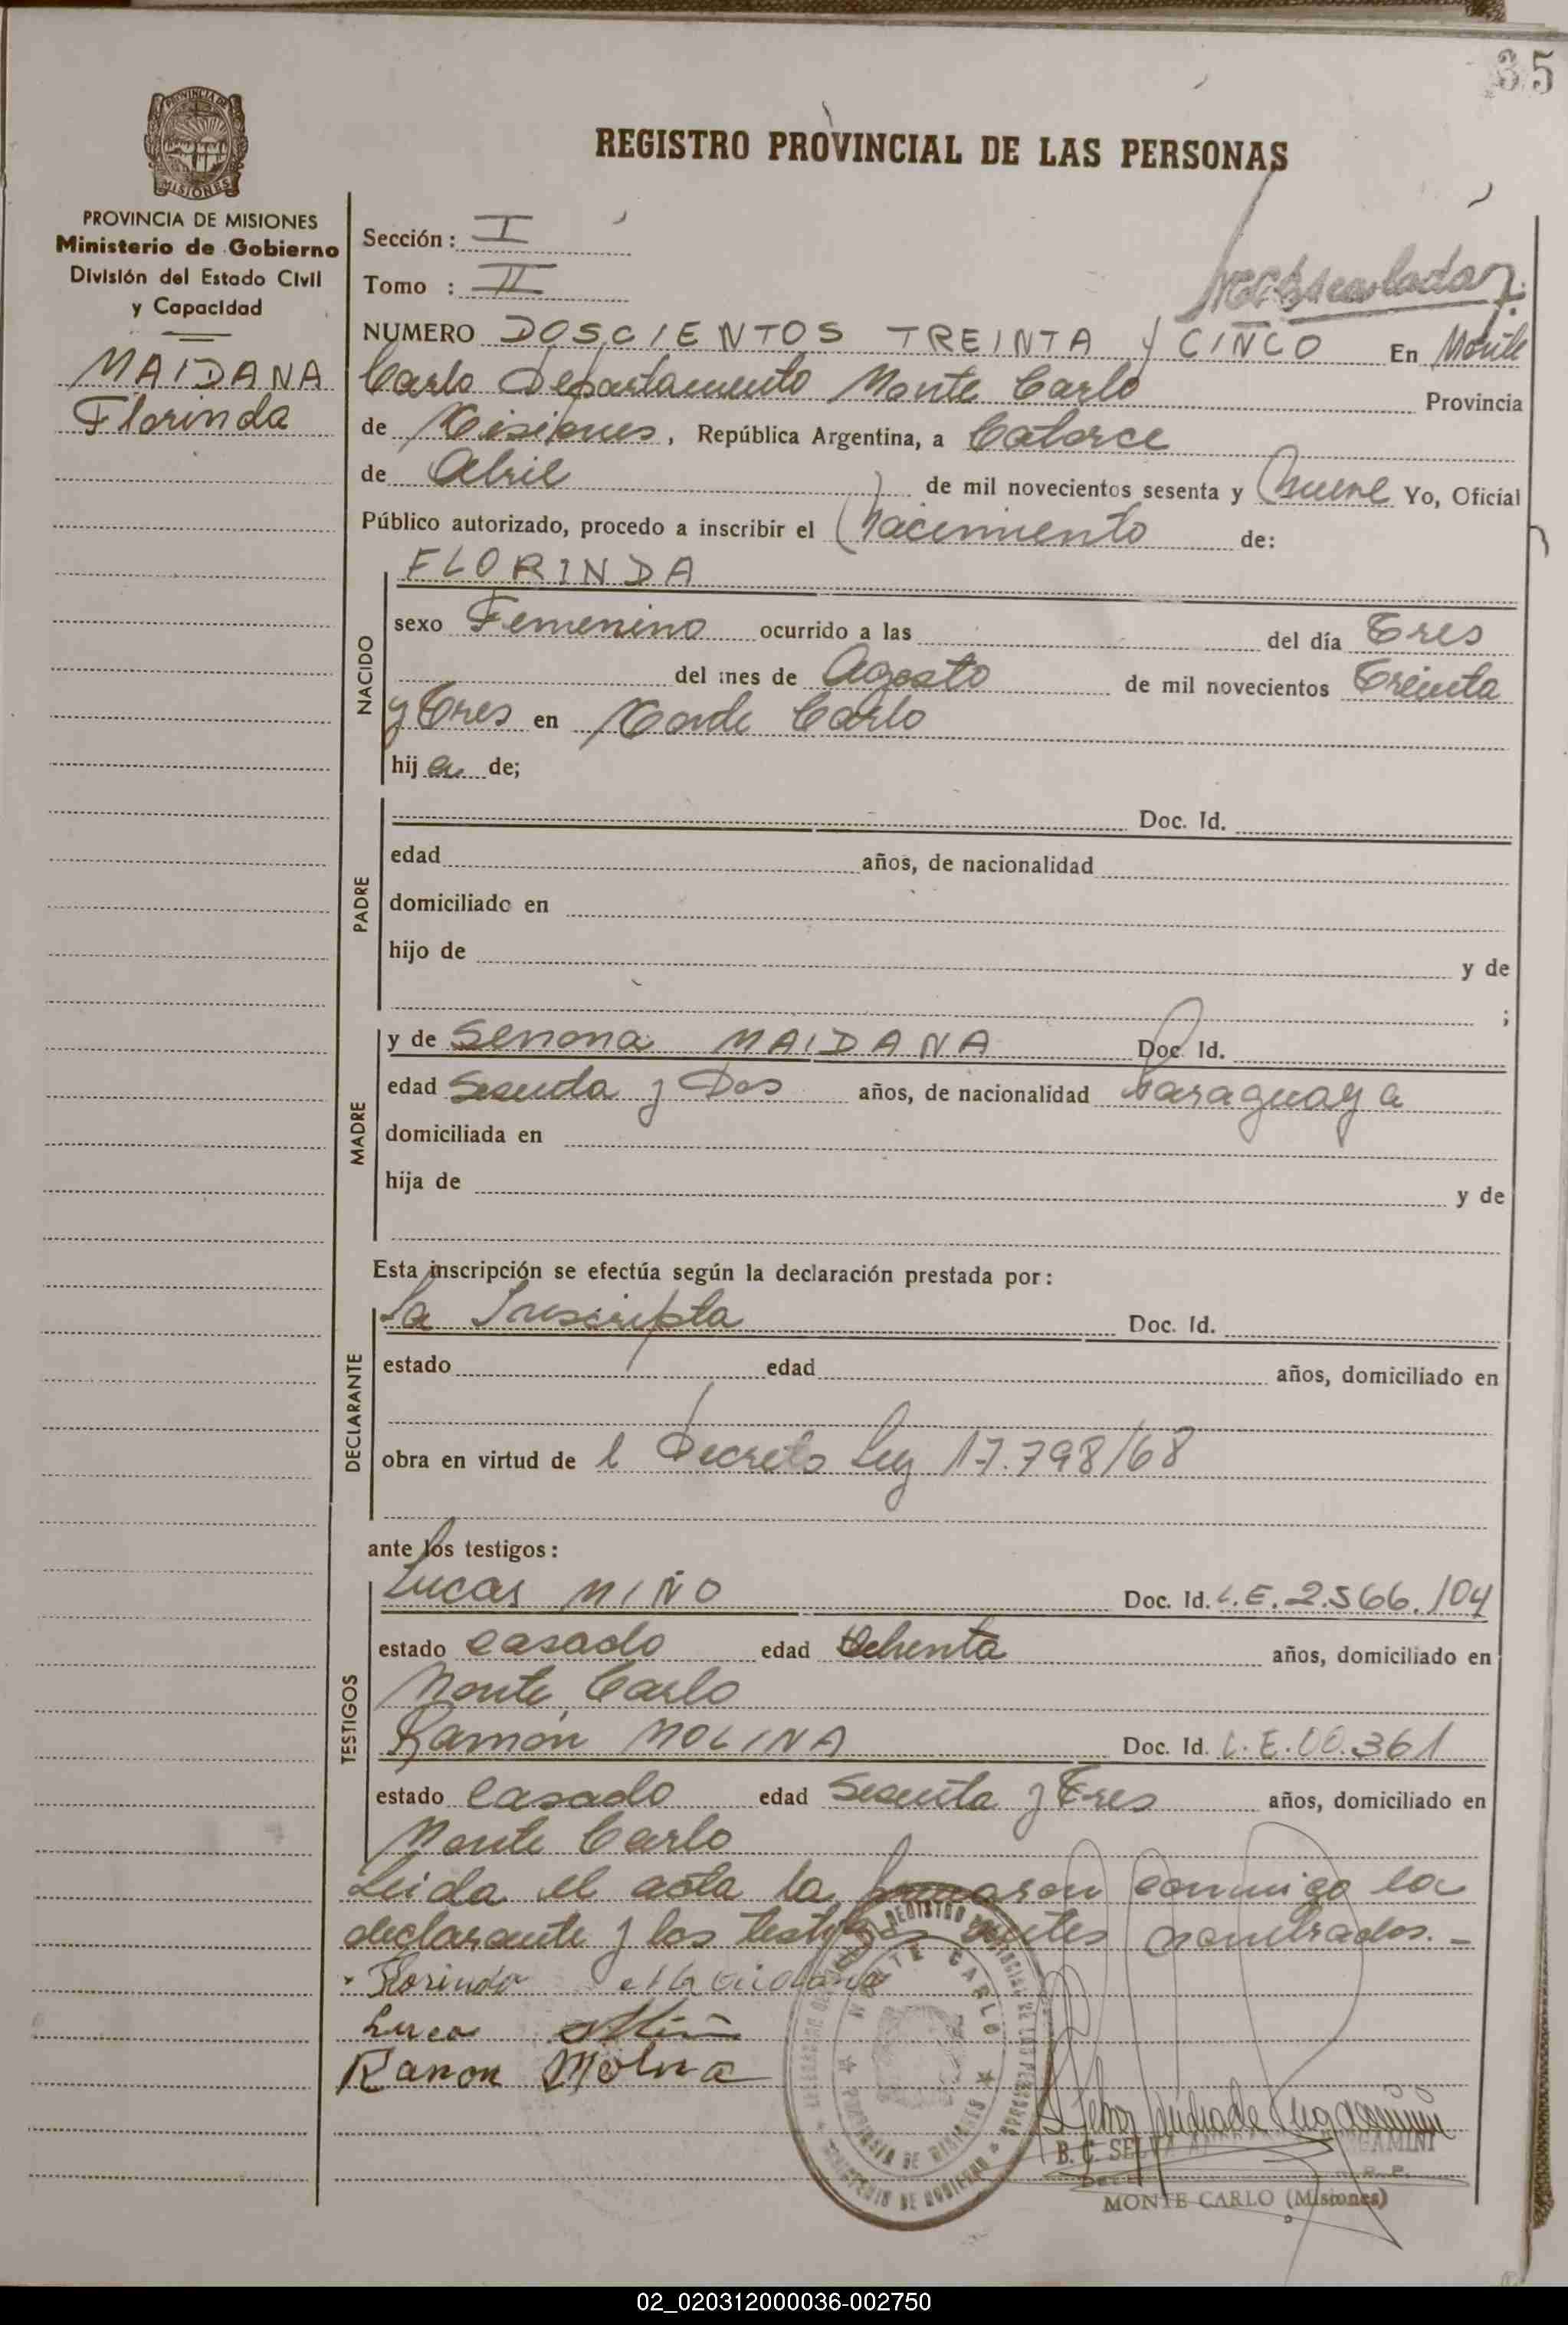 35
PROVINCIA DE
MISIONES
REGISTRO PROVINCIAL DE LAS PERSONAS
PROVINCIA DE MISIONES
Ministerio de Gobierno
División del Estado Civil
y Capacidad
MAIDANA
Florinda
Sección: I
Tomo : II
NUMERO DOSCIENTOS TREINTA Y CINCO En Monte
Carlo Departamento Monte Carlo Provincia
de Misiones, República Argentina, a Catorce
de Abril de mil novecientos sesenta y Nueve Yo, Oficial
Público autorizado, procedo a inscribir el Nacimiento de:
NACIDO
FLORINDA
sexo Femenino ocurrido a las del día Tres
del mes de Agosto de mil novecientos Treinta
y Tres en Monte Carlo
hija de;
PADRE
Doc. Id.
edad años, de nacionalidad
domiciliado en
hijo de y de
;
MADRE
y de MAIDANA Doc. Id.
edad Sesenta y Dos años, de nacionalidad Paraguaya
domiciliada en
hija de y de
Esta inscripción se efectúa según la declaración prestada por:
DECLARANTE
La Inscripta Doc. Id.
estado edad años, domiciliado en
obra en virtud de l Decreto Ley 17.798/68
ante los testigos:
TESTIGOS
Lucas MIÑO Doc. Id. L.E. 2.566.104
estado casado edad Ochenta años, domiciliado en
Monte Carlo
Ramón MOLINA Doc. Id. L.E. 00.361
estado casado edad Sesenta y Tres años, domiciliado en
Monte Carlo
Leida el acta la firmaron conmigo la
declarante y los testigos antes nombrados.-
Florinda Maidana
Luca Miño
Ramon Molina
MONTE CARLO
PROVINCIA DE MISIONES
MINISTERIO DE GOBIERNO
B. C. SELVA
MONTE CARLO (Misiones)
02_020312000036-002750